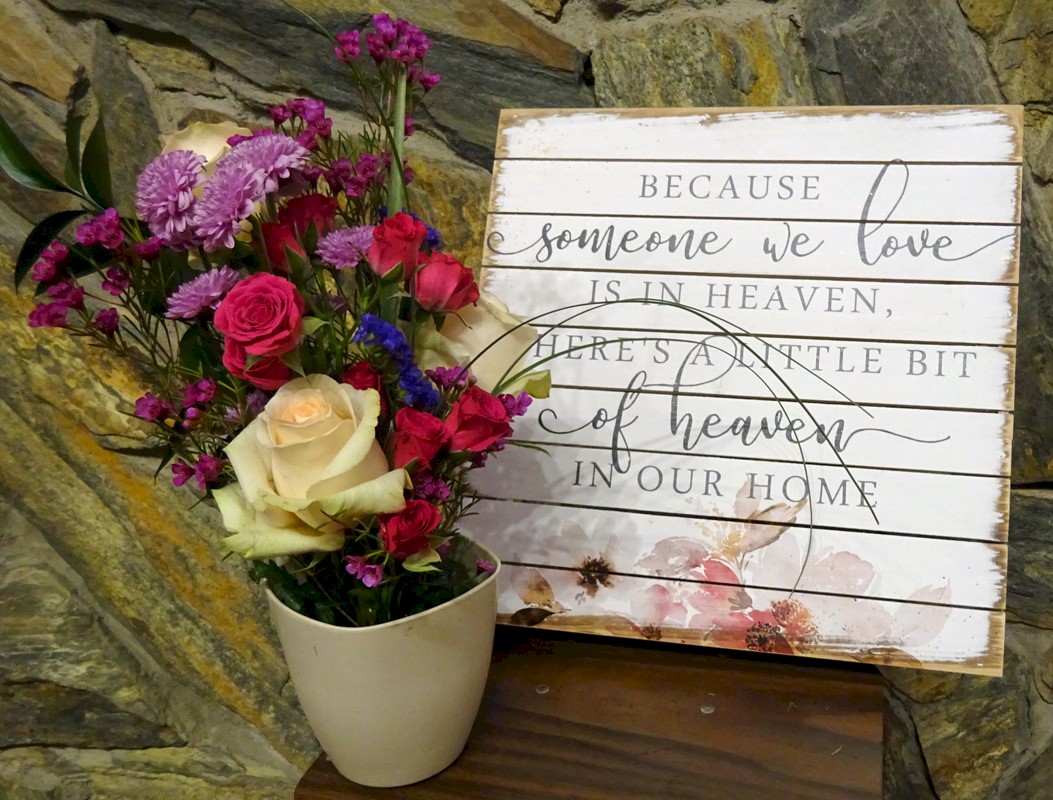 BECAUSE
someone we love
IS IN HEAVEN,
HERE'S A LITTLE BIT
of heaven
IN OUR HOME